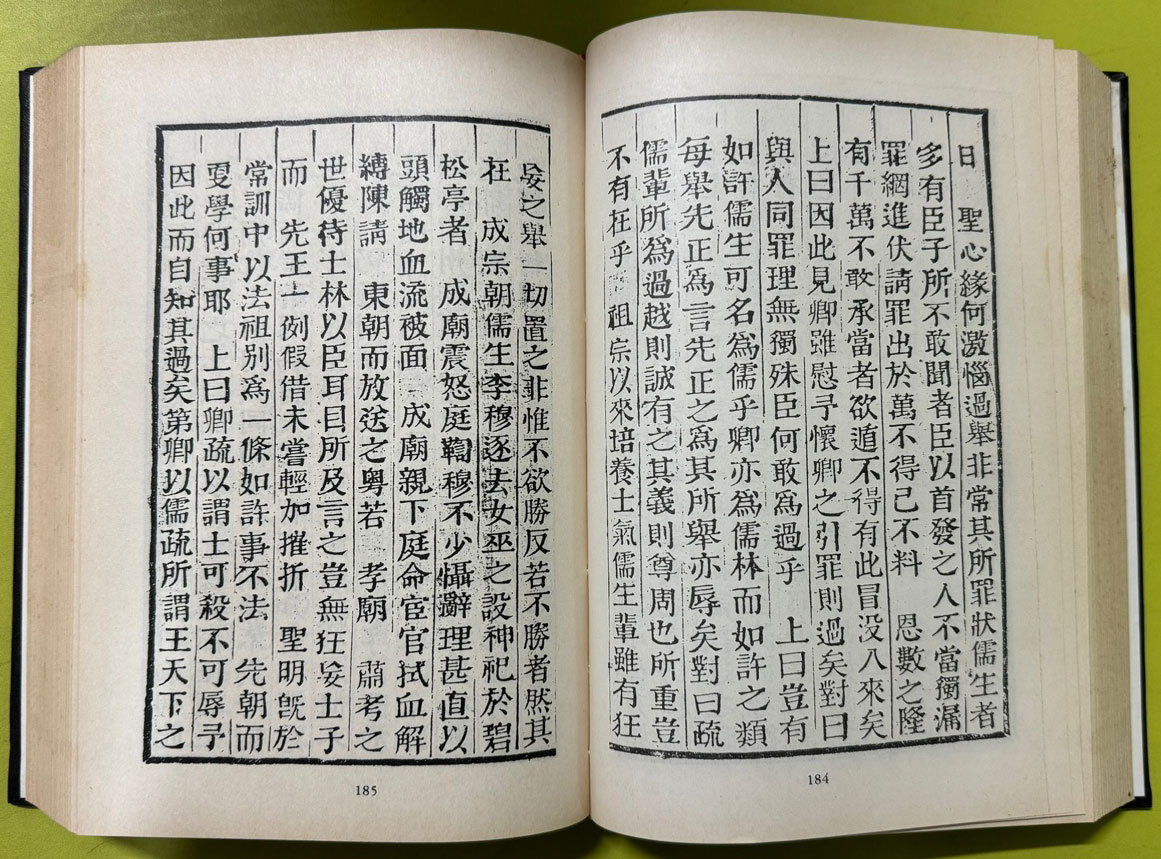 日 聖心緣何激惱過舉非常其所罪狀儒生者
多有臣子所不敢聞者臣以首發之人不當獨漏
罪網進伏請罪出於萬不得已不料 恩數之隆
有千萬不敢承當者欲遁不得有此冒沒入來矣
上曰因此見卿雖慰予懷卿之引罪則過矣對曰
與人同罪理無獨殊臣何敢爲過乎 上曰豈有
如許儒生可名爲儒乎卿亦爲儒林而如許之類
每舉先正爲言先正之爲其所舉亦辱矣對曰疏
儒輩所爲過越則誠有之其義則尊周也所重豈
不有在乎 祖宗以來培養士氣儒生輩雖有狂
184
妄之舉一切置之非惟不欲勝反若不勝者然其
在 成宗朝儒生李穆逐去女巫之設神祀於碧
松亭者 成廟震怒庭鞫穆不少懾辭理甚直以
頭觸地血流被面 成廟親下庭命宦官拭血解
縛陳請 東朝而放送之粤若 孝廟 肅考之
世優待士林以臣耳目所及言之豈無狂妄士子
而 先王一例假借未嘗輕加摧折 聖明旣於
常訓中以法祖別爲一條如許事不法 先朝而
更學何事耶 上曰卿疏以謂士可殺不可辱予
因此而自知其過矣第卿以儒疏所謂王天下之
185